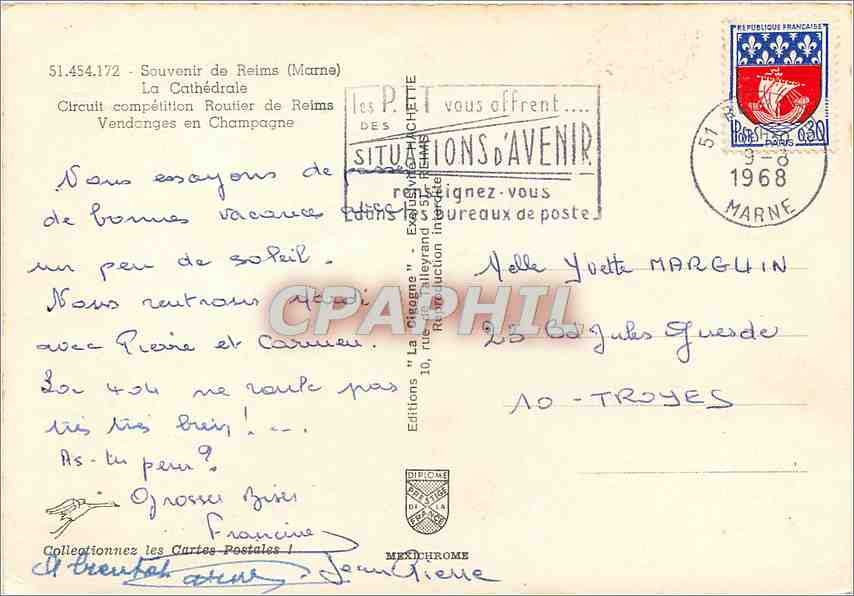 51.454.172 - Souvenir de Reims (Marne)
La Cathédrale
Circuit compétition Routier de Reims
Vendanges en Champagne
Nous essayons de passer
de bonnes vacances avec
un peu de soleil.
Nous rentrons Mardi
avec Pierre et Carmen.
404 ne roule pas
très très bien! -..
As-tu peur?
Grosses Bises
Francine
Jean Pierre
Collectionnez les Cartes Postales !
Editions "La Cigogne" - Exclusivité HACHETTE
10, rue de Talleyrand 51-REIMS
Reproduction interdite
DIPLOME
PRESTIGE
DE LA
FRANCE
MEXICHROME
les P.T.T vous offrent....
DES
SITUATIONS D'AVENIR
renseignez-vous
dans les bureaux de poste
REPUBLIQUE FRANÇAISE
POSTES 0,30
PARIS
51
9-8
1968
MARNE
Melle Yvette MARGUIN
23 Bd Jules Guesde
10 - TROYES
CPAPHIL